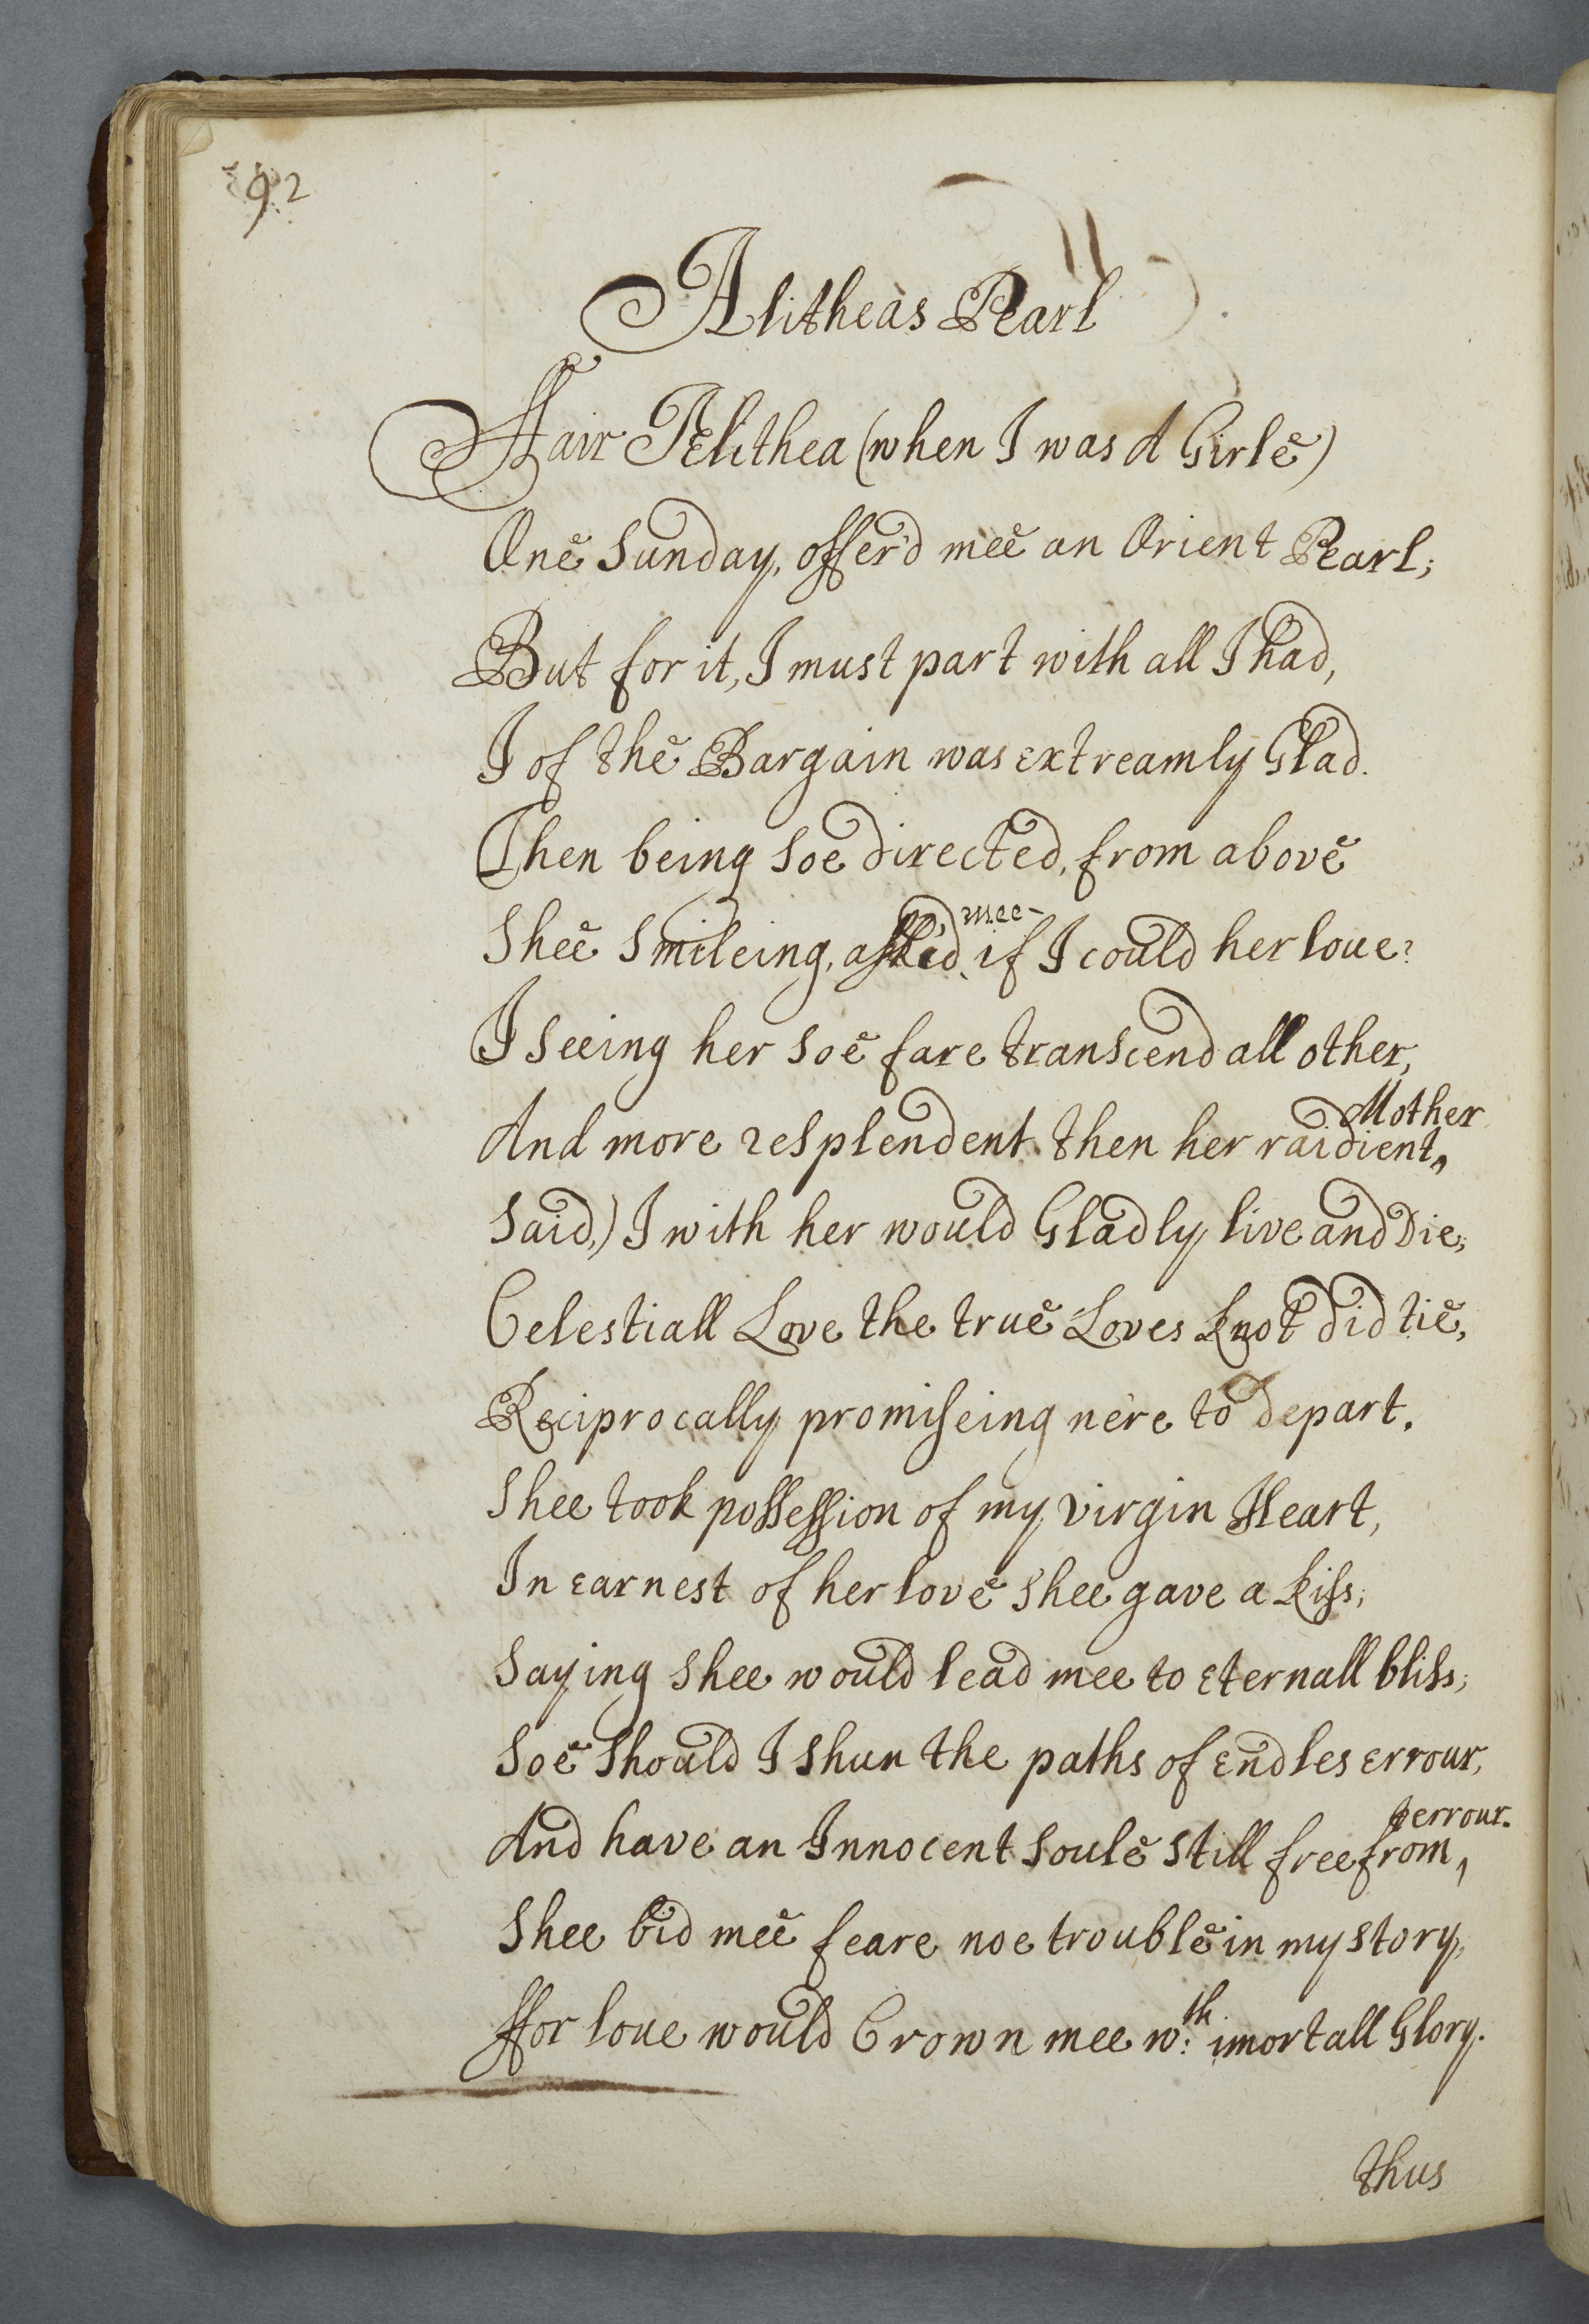 92
Alitheas Pearl
Ffair Alithea (when I was A Girle)
One Sunday, offer'd mee an Orient Pearl;
But for it, I must part with all I had,
I of the Bargain was extreamly Glad.
Then being soe directed, from above
Shee Smileing, ask'd mee if I could her loue?
I seeing her soe fare transcend all other,
And more resplendent then her raidient Mother
Said,) I with her would Gladly live and Die,
Celestiall Love the true Loves knot did tie,
Reciprocally promiseing nere to depart.
Shee took possession of my virgin Heart,
In earnest of her love shee gave a kiss;
Saying shee would lead mee to eternall bliss;
Soe should I shun the paths of endles errour,
And have an Innocent Soule still free from terrour.
Shee bid mee feare noe trouble in my story,
Ffor loue would Crown mee wth: imortall Glory.
thus